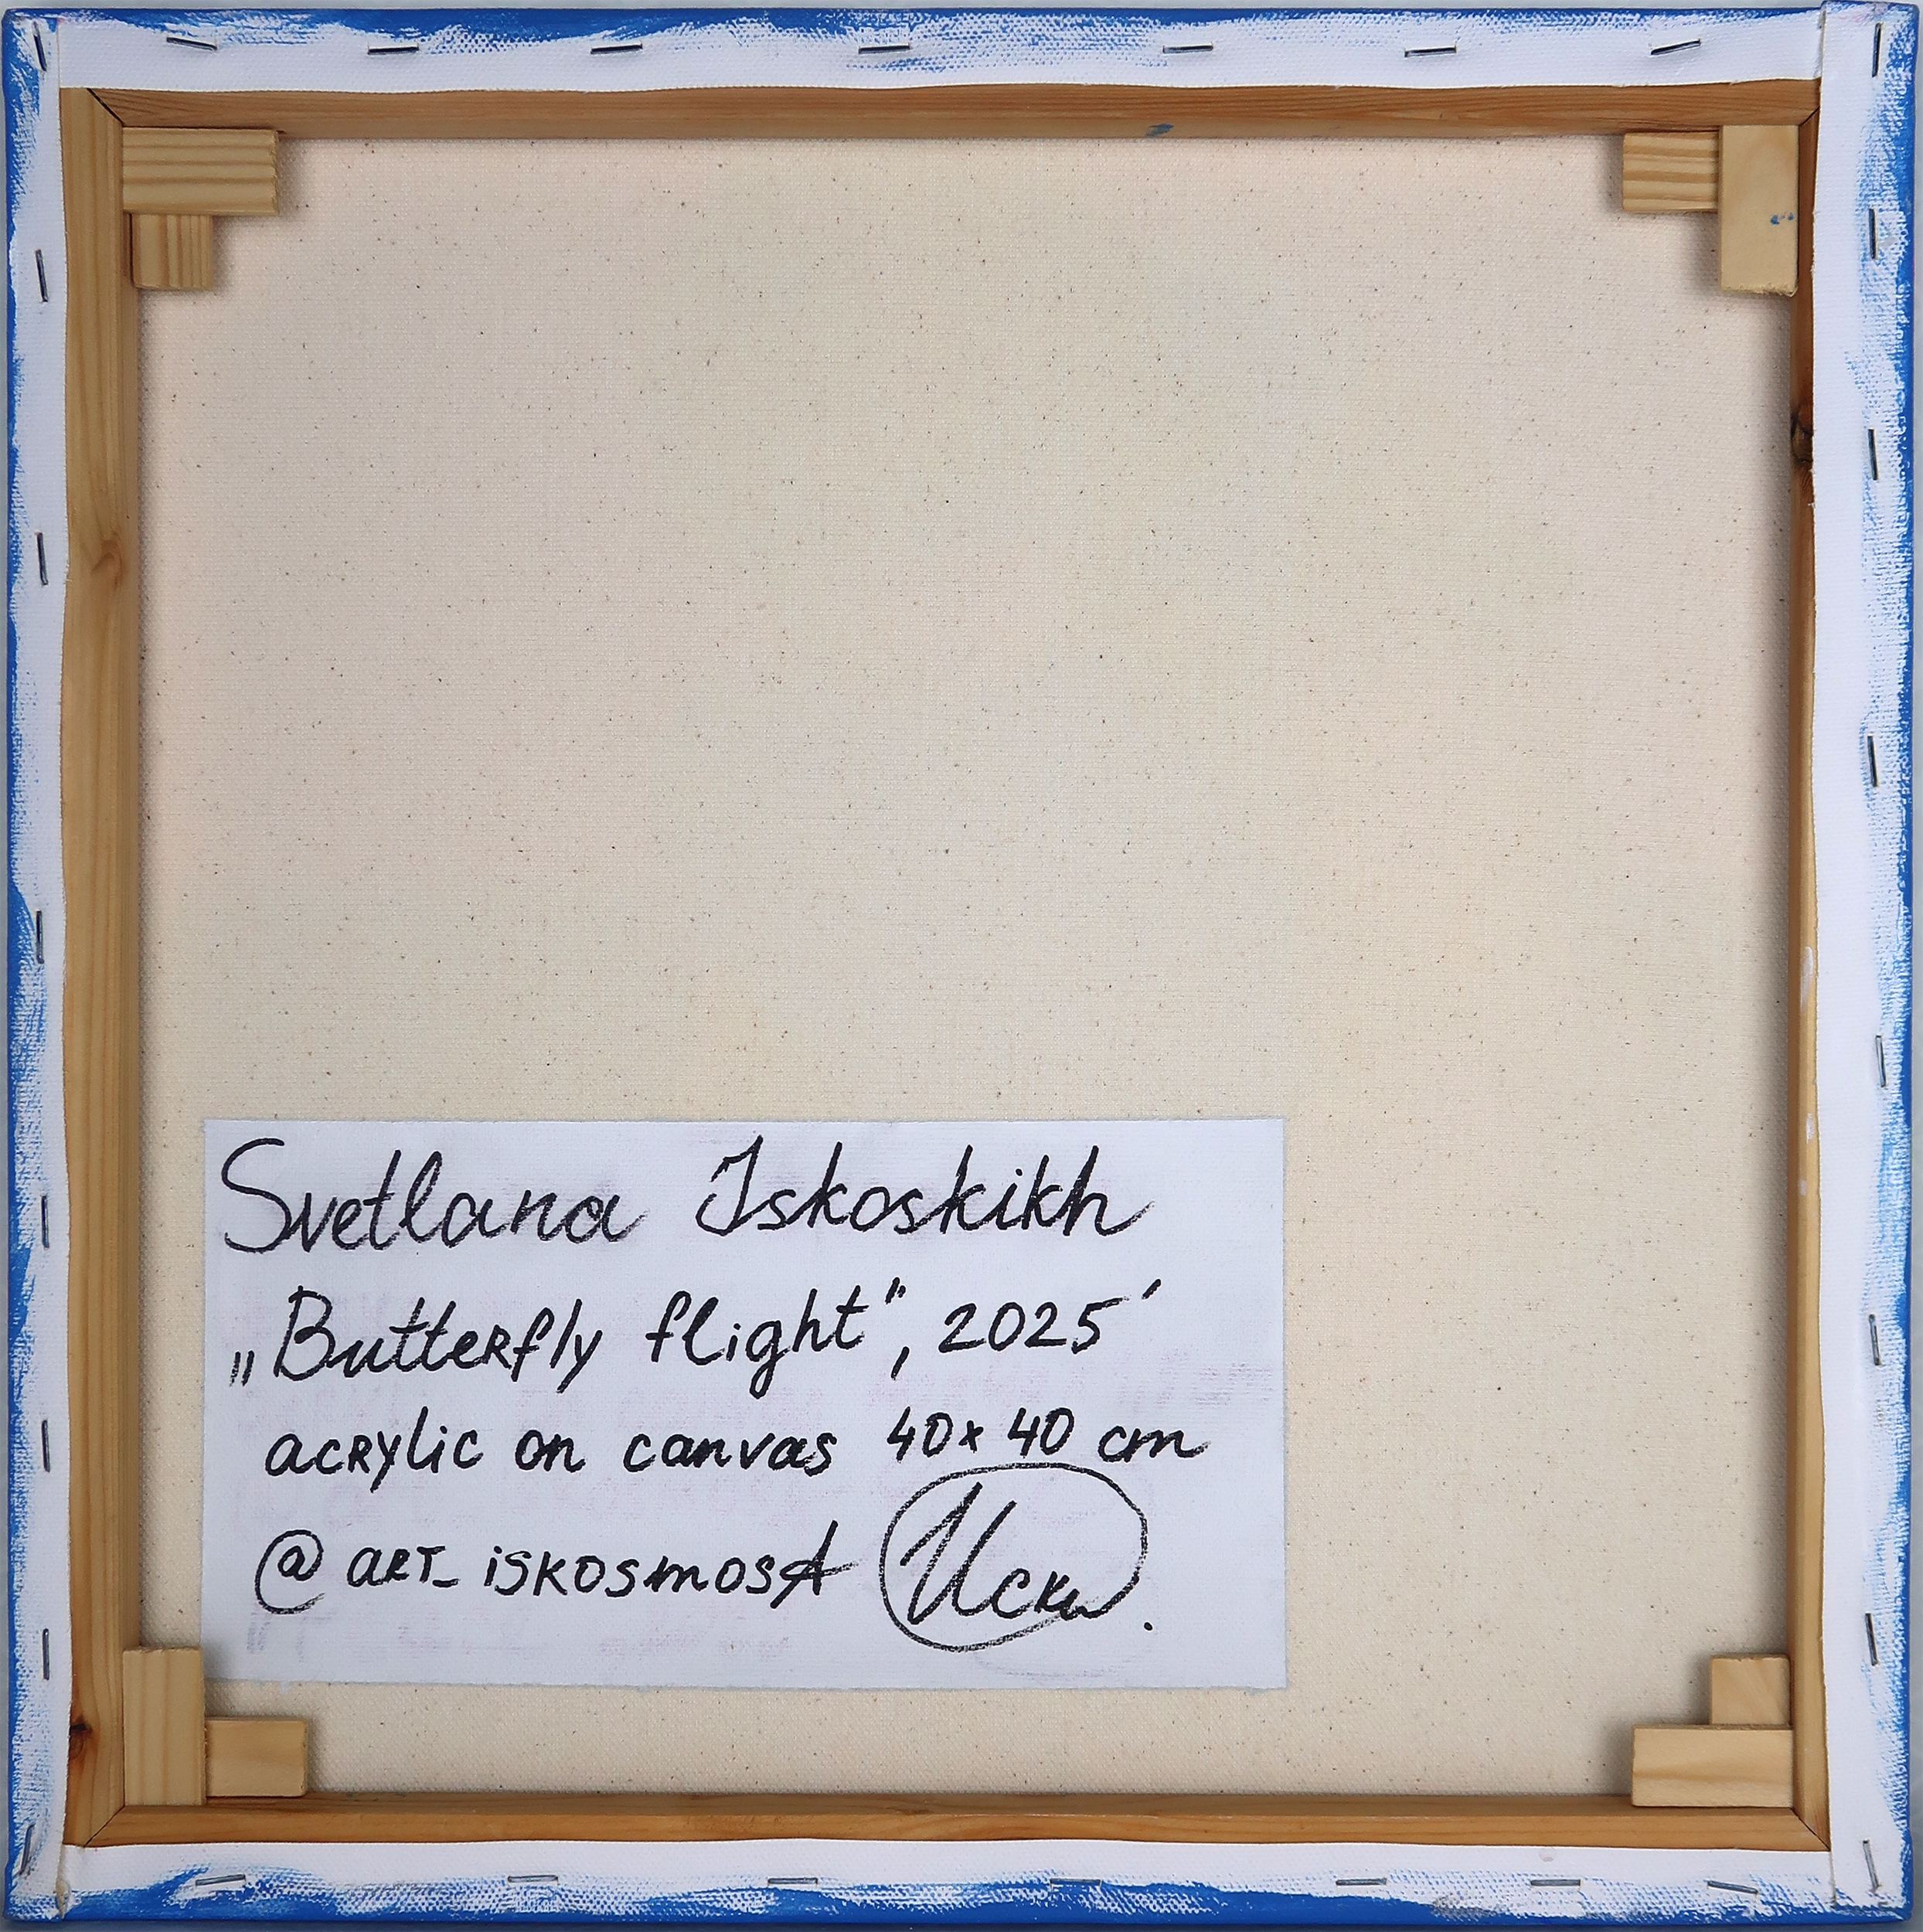 Svetlana Iskoskikh
„Butterfly flight“, 2025'
acrylic on canvas 40x40 cm
@art_iskosmosA